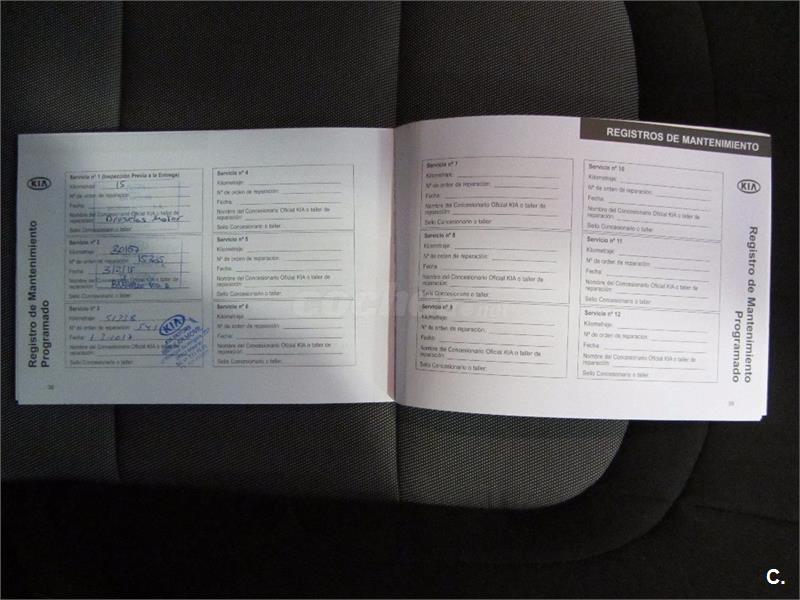 REGISTROS DE MANTENIMIENTO
KIA
Registro de Mantenimiento
Programado
Servicio nº 1 (Inspección Previa a la Entrega)
Kilometraje: 15
Nº de orden de reparación:
Fecha:
Nombre del Concesionario Oficial KIA o taller de
reparación:
Sello Concesionario o taller:
Servicio nº 2
Kilometraje:
Nº de orden de reparación:
Fecha:
Nombre del Concesionario Oficial KIA o taller de
reparación:
Sello Concesionario o taller:
Servicio nº 3
Kilometraje:
Nº de orden de reparación:
Fecha:
Nombre del Concesionario Oficial KIA o taller de
reparación:
Sello Concesionario o taller:
KIA
38
Servicio nº 4
Kilometraje:
Nº de orden de reparación:
Fecha:
Nombre del Concesionario Oficial KIA o taller de
reparación:
Sello Concesionario o taller:
Servicio nº 5
Kilometraje:
Nº de orden de reparación:
Fecha:
Nombre del Concesionario Oficial KIA o taller de
reparación:
Sello Concesionario o taller:
Servicio nº 6
Kilometraje:
Nº de orden de reparación:
Fecha:
Nombre del Concesionario Oficial KIA o taller de
reparación:
Sello Concesionario o taller:
Servicio nº 7
Kilometraje:
Nº de orden de reparación:
Fecha:
Nombre del Concesionario Oficial KIA o taller de
reparación:
Sello Concesionario o taller:
Servicio nº 8
Kilometraje:
Nº de orden de reparación:
Fecha:
Nombre del Concesionario Oficial KIA o taller de
reparación:
Sello Concesionario o taller:
Servicio nº 9
Kilometraje:
Nº de orden de reparación:
Fecha:
Nombre del Concesionario Oficial KIA o taller de
reparación:
Sello Concesionario o taller:
Servicio nº 10
Kilometraje:
Nº de orden de reparación:
Fecha:
Nombre del Concesionario Oficial KIA o taller de
reparación:
Sello Concesionario o taller:
Servicio nº 11
Kilometraje:
Nº de orden de reparación:
Fecha:
Nombre del Concesionario Oficial KIA o taller de
reparación:
Sello Concesionario o taller:
Servicio nº 12
Kilometraje:
Nº de orden de reparación:
Fecha:
Nombre del Concesionario Oficial KIA o taller de
reparación:
Sello Concesionario o taller:
KIA
Registro de Mantenimiento
Programado
39
C.